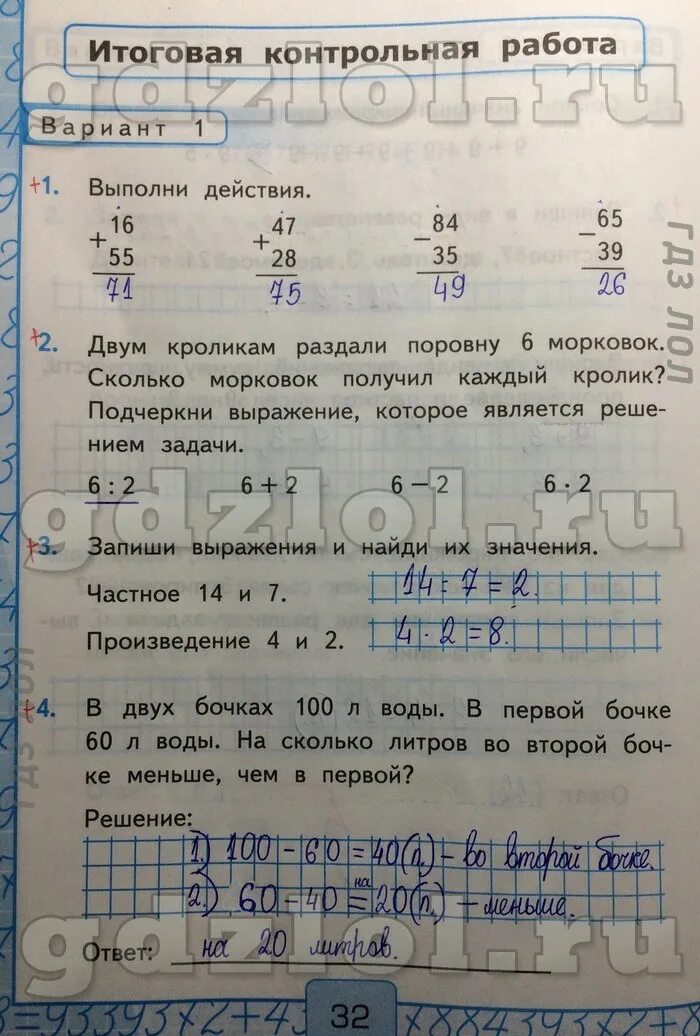 Итоговая контрольная работа
Вариант 1
+1. Выполни действия.
+ 16 + 47 − 84 − 65
55 28 35 39
71 75 49 26
+2. Двум кроликам раздали поровну 6 морковок.
Сколько морковок получил каждый кролик?
Подчеркни выражение, которое является реше-
нием задачи.
6 : 2 6 + 2 6 − 2 6 · 2
+3. Запиши выражения и найди их значения.
Частное 14 и 7. 14 : 7 = 2.
Произведение 4 и 2. 4 · 2 = 8.
+4. В двух бочках 100 л воды. В первой бочке
60 л воды. На сколько литров во второй боч-
ке меньше, чем в первой?
Решение:
1) 100 − 60 = 40 (л.) − во второй бочке.
2) 60 − 40 = на 20 (л.) − меньше.
Ответ: на 20 литров.
32
gdzlol.ru
gdzlol.ru
gdzlol.ru
ГДЗ ЛОЛ
ГДЗ ЛОЛ